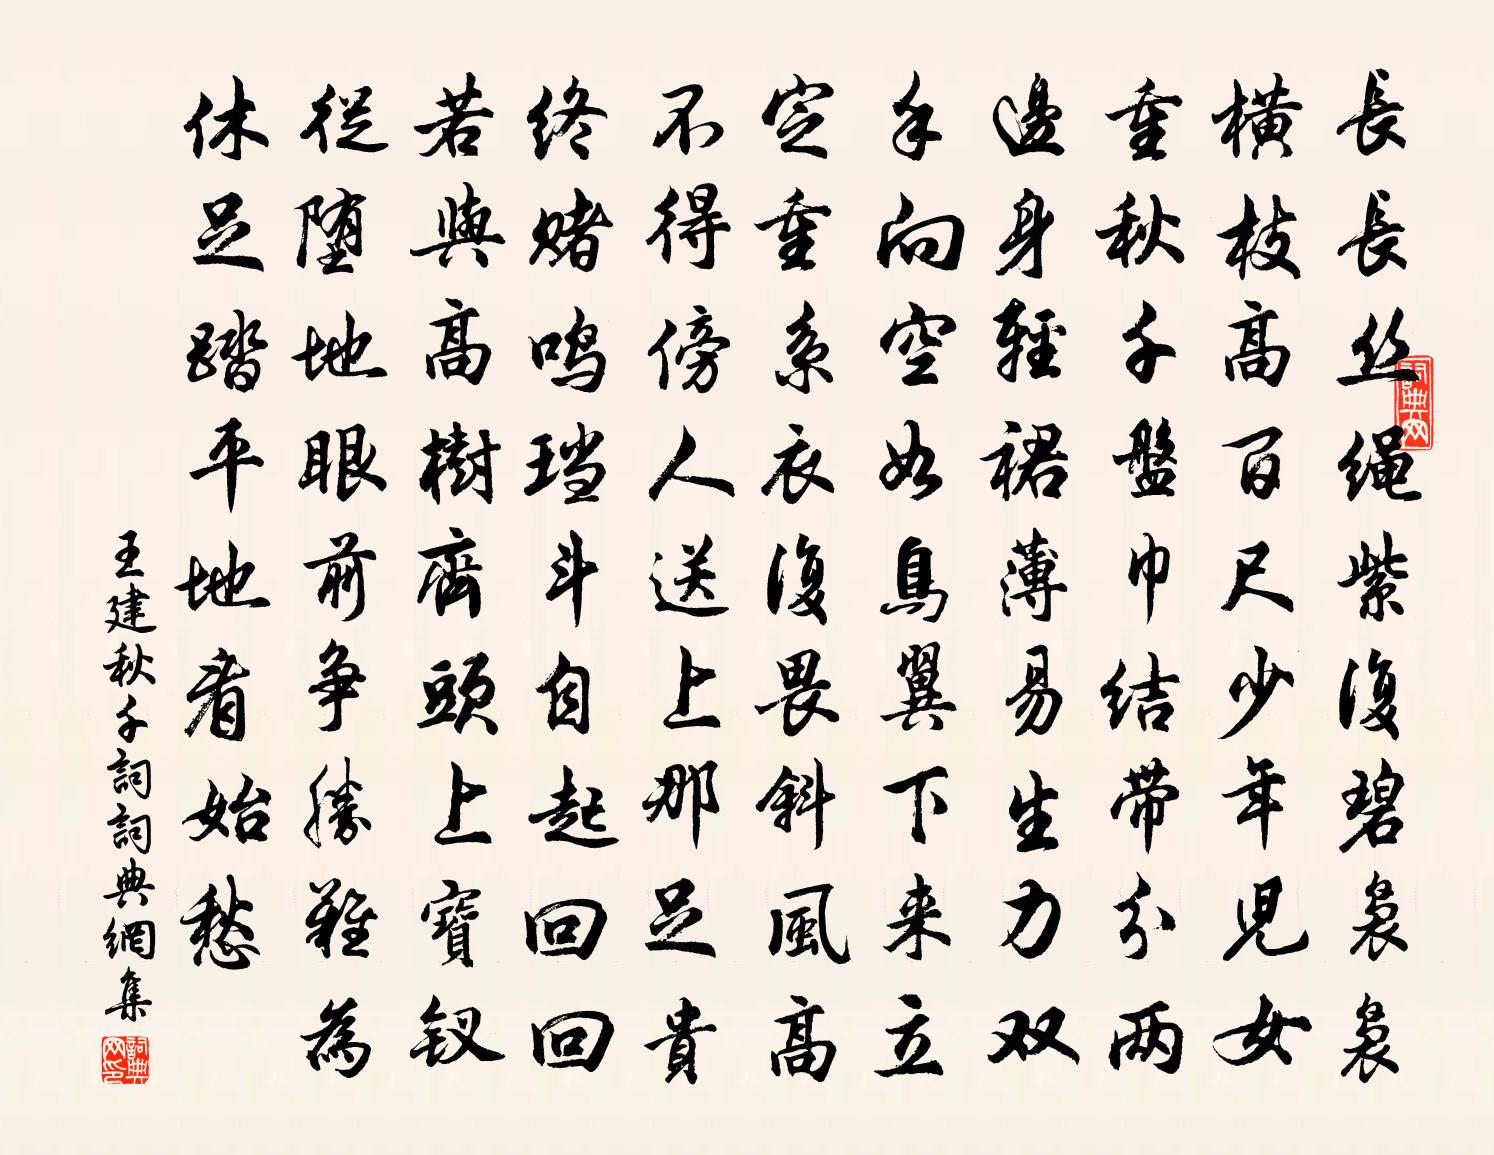 長長丝绳紫復碧袅袅
横枝高百尺少年児女
重秋千盤巾結带分两
邊身輕裙薄易生力双
手向空如鳥翼下来立
定重系衣復畏斜風高
不得傍人送上那足貴
终赌鸣珰斗自起回回
若與高樹齊頭上寶钗
從堕地眼前争勝難為
休足踏平地看始愁
王建秋千詞詞典網集
詞典网
詞典网印